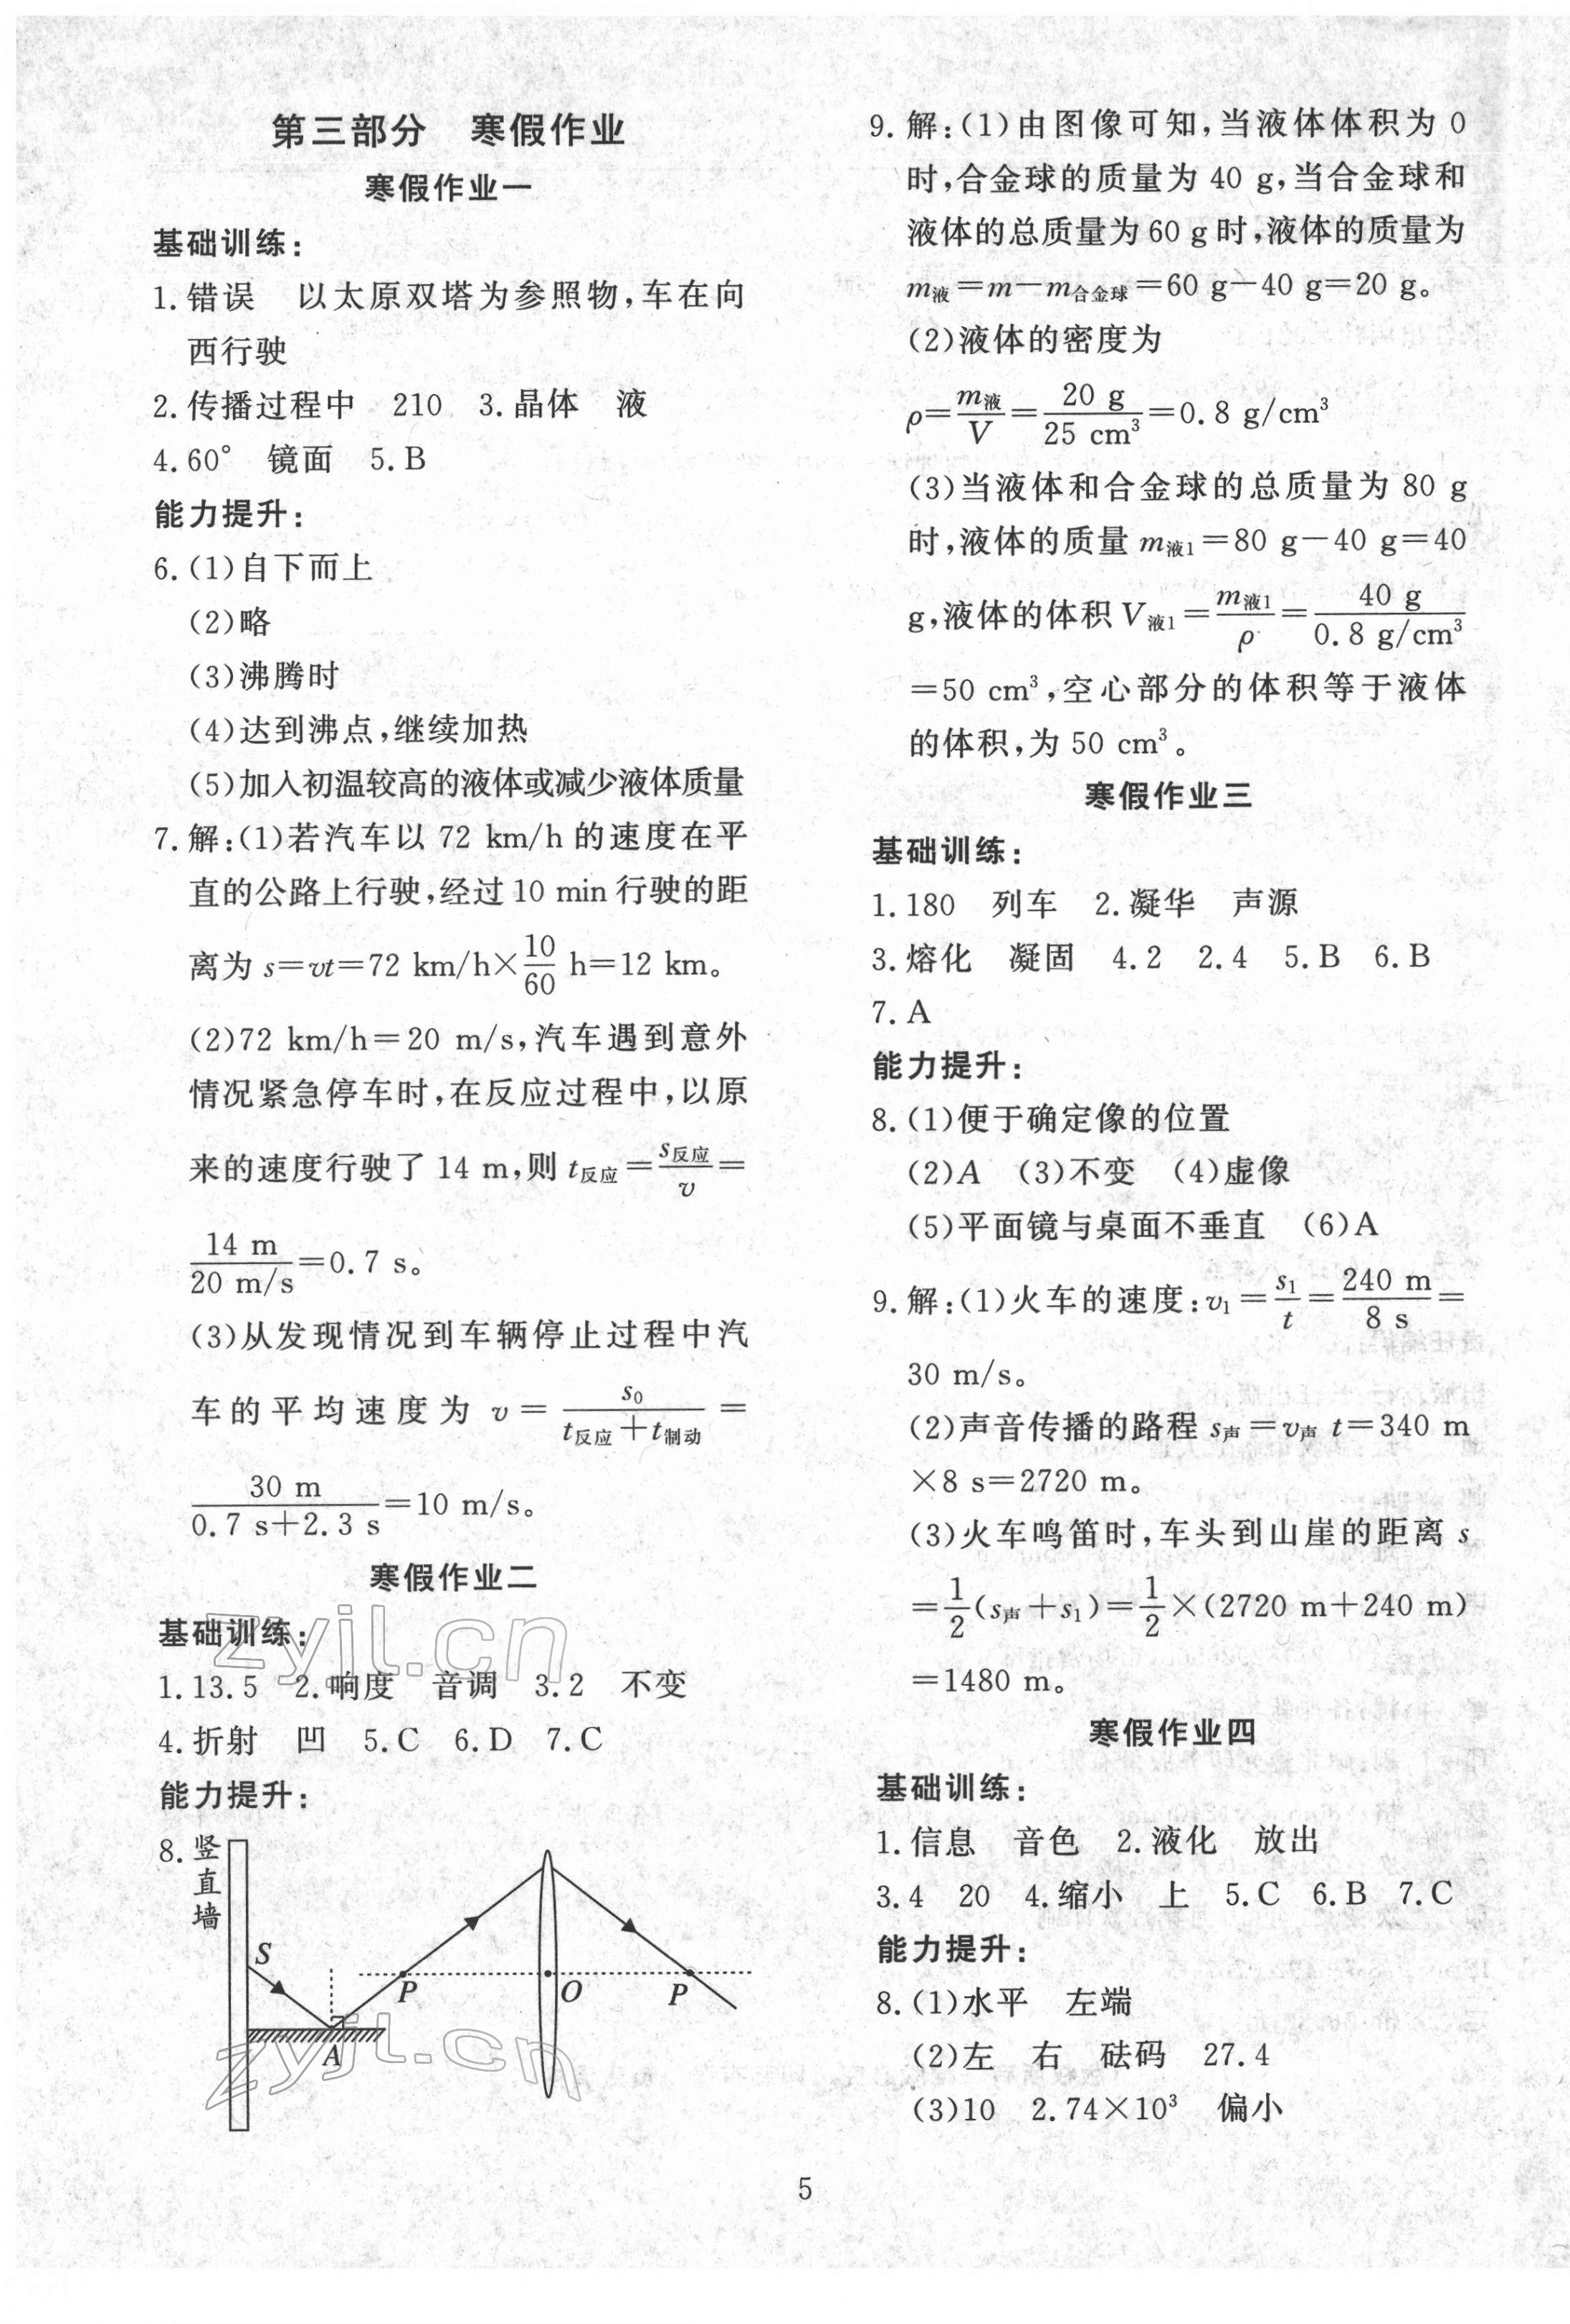 第三部分　寒假作业
寒假作业一
基础训练：
1.错误　以太原双塔为参照物，车在向
西行驶
2.传播过程中　210　3.晶体　液
4.60°　镜面　5.B
能力提升：
6.(1)自下而上
(2)略
(3)沸腾时
(4)达到沸点，继续加热
(5)加入初温较高的液体或减少液体质量
7.解：(1)若汽车以 72 km/h 的速度在平
直的公路上行驶，经过 10 min 行驶的距
离为 s=vt=72 km/h×10/60 h=12 km。
(2)72 km/h=20 m/s，汽车遇到意外
情况紧急停车时，在反应过程中，以原
来的速度行驶了 14 m，则 t反应=s反应/v=
14 m/20 m/s=0.7 s。
(3)从发现情况到车辆停止过程中汽
车的平均速度为 v=s₀/(t反应+t制动)=
30 m/(0.7 s+2.3 s)=10 m/s。
寒假作业二
基础训练：
1.13.5　2.响度　音调　3.2　不变
4.折射　凹　5.C　6.D　7.C
能力提升：
8.
竖直墙
S
P
O
P
A
zyjl.cn
zyjl.cn
9.解：(1)由图像可知，当液体体积为 0
时，合金球的质量为 40 g，当合金球和
液体的总质量为 60 g 时，液体的质量为
m液=m－m合金球=60 g－40 g=20 g。
(2)液体的密度为
ρ=m液/V=20 g/25 cm³=0.8 g/cm³
(3)当液体和合金球的总质量为 80 g
时，液体的质量 m液1=80 g－40 g=40
g，液体的体积 V液1=m液1/ρ=40 g/0.8 g/cm³
=50 cm³，空心部分的体积等于液体
的体积，为 50 cm³。
寒假作业三
基础训练：
1.180　列车　2.凝华　声源
3.熔化　凝固　4.2　2.4　5.B　6.B
7.A
能力提升：
8.(1)便于确定像的位置
(2)A　(3)不变　(4)虚像
(5)平面镜与桌面不垂直　(6)A
9.解：(1)火车的速度：v₁=s₁/t=240 m/8 s=
30 m/s。
(2)声音传播的路程 s声=v声 t=340 m
×8 s=2720 m。
(3)火车鸣笛时，车头到山崖的距离 s
=1/2(s声+s₁)=1/2×(2720 m+240 m)
=1480 m。
寒假作业四
基础训练：
1.信息　音色　2.液化　放出
3.4　20　4.缩小　上　5.C　6.B　7.C
能力提升：
8.(1)水平　左端
(2)左　右　砝码　27.4
(3)10　2.74×10³　偏小
5